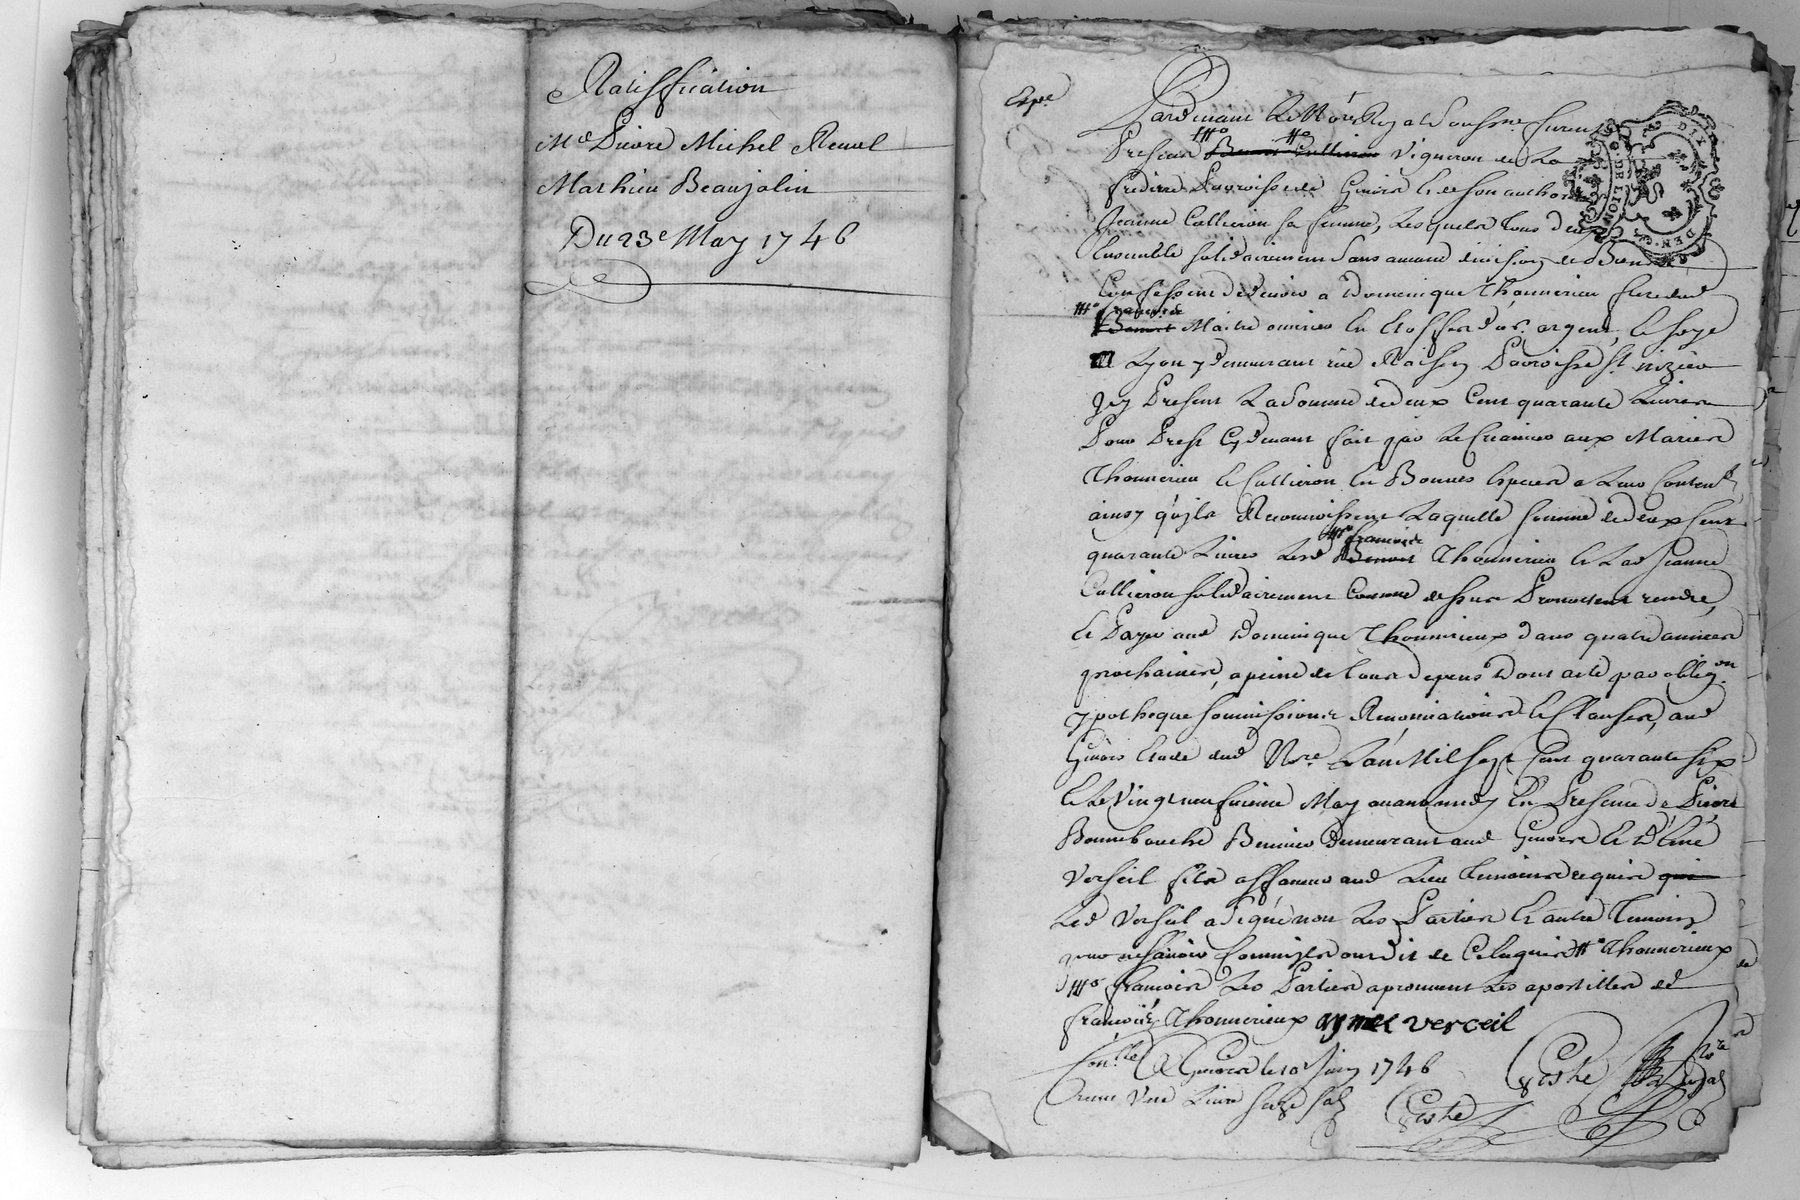 Ratiffication
Me Pierre Michel Revel
Mathieu Beaujolin
Du 23e May 1746
Expé
Pardevant Le Nore Royal soussne furent
Presens Benoit Cullieron Vigneron de La
fredière Parroisse de Givors et de son authorité
Jeanne Cullieron sa femme, Lesquels tous deux
Ensemble solidairement sans aucune division de Biens
Confessent devoir a Dominique Thonnerieu frere dud
francois
Benoit Maitre ouvrier En Etoffes d'or, argent, et soye
a Lyon y demeurant rue Raisin Parroisse st nizier
Icy Present La somme de deux Cent quarante Livres
Pour Prest Cy devant fait par Le ... aux Mariés
Thonnerieu et Cullieron En Bonnes Especes a Leur Contentt
ainsy qu'jls Reconnoissent Laquelle somme de deux Cent
francois
quarante Livres Lesd Benoit Thonnerieu et Lad Jeanne
Cullieron solidairement Comme dessus Promettent rendre,
Et Payer aud Dominique Thonnerieux dans quatre années
prochaines, a peine de tous depens Dont acte par obligon
ypotheque soumissions Renonciations et Clauses, aud
Givors Etude dud Nore L'an Mil sept Cent quarante six
Et Le Vingt neufvieme May avant midy En Presence de Pierre
Bonnebouche Bennier Demeurant aud Givors et D'Emé
Verseil fils affaneur aud Lieu temoins requis qui
Led Verseil a signé non Les Parties Et autre temoin
pour ne scavoir Comme jls ont dit de Ce Enquis Thonnerieux
francois Les Parties aprouvent Les apostilles de
francois Thonnerieux aymee verceil
Conllé A Givors le 10e Juin 1746
Receu Une Livre seize sols